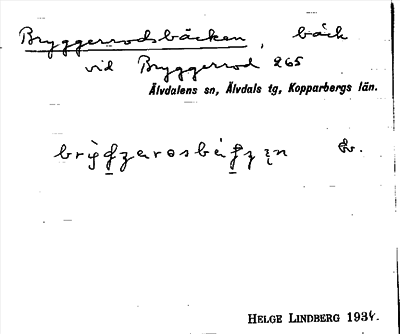 Bryggerrodsbäcken, bäck
vid Bryggerrod 265
Älvdalens sn, Älvdals tg, Kopparbergs län.
HELGE LINDBERG 1934.